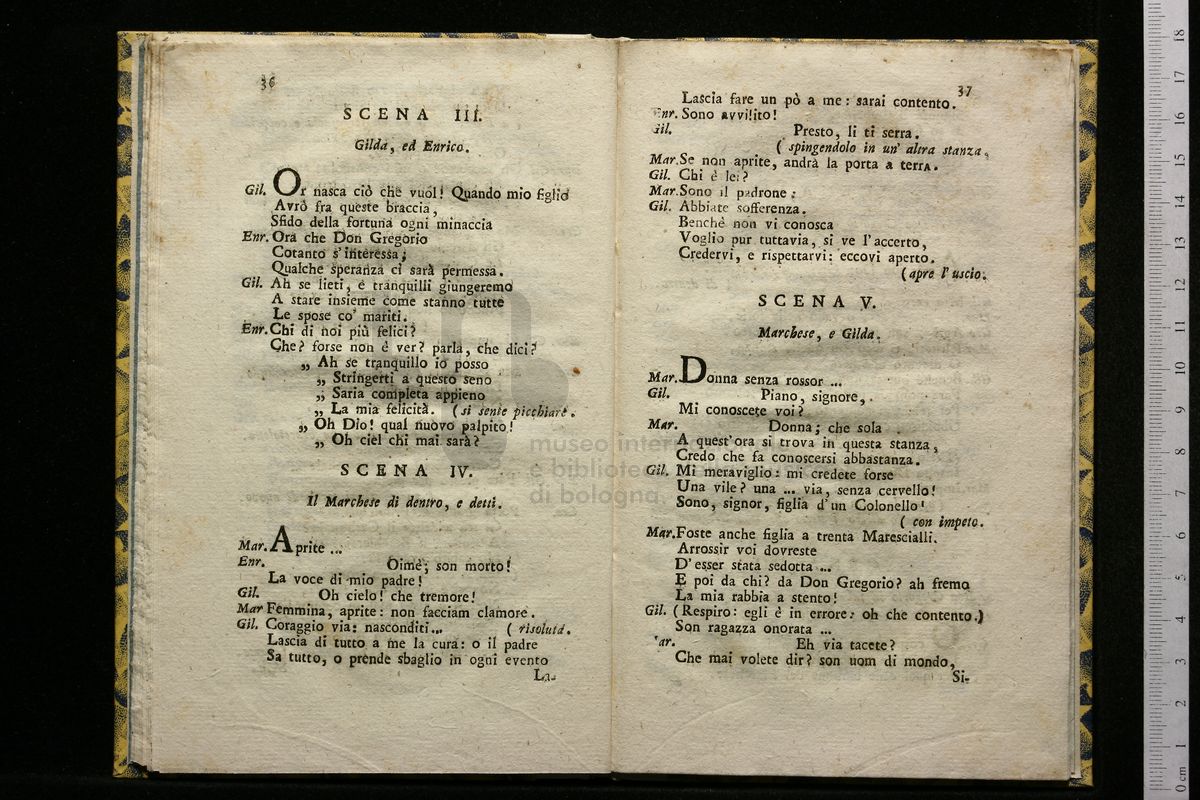 36
SCENA III.
Gilda, ed Enrico.
Gil. Or nasca ciò che vuol! Quando mio figlio
Avrò fra queste braccia,
Sfido della fortuna ogni minaccia
Enr. Ora che Don Gregorio
Cotanto s'interessa;
Qualche speranza ci sarà permessa.
Gil. Ah se lieti, e tranquilli giungeremo
A stare insieme come stanno tutte
Le spose co' mariti.
Enr. Chi di noi più felici?
Che? forse non è ver? parla, che dici?
„ Ah se tranquillo io posso
„ Stringerti a questo seno
„ Saria completa appieno
„ La mia felicità. (si sente picchiare.
„ Oh Dio! qual nuovo palpito!
„ Oh ciel chi mai sarà?
SCENA IV.
Il Marchese di dentro, e detti.
Mar. Aprite ...
Enr. Oimè; son morto!
La voce di mio padre!
Gil. Oh cielo! che tremore!
Mar Femmina, aprite: non facciam clamore.
Gil. Coraggio via: nasconditi... (risoluta.
Lascia di tutto a me la cura: o il padre
Sa tutto, o prende sbaglio in ogni evento
La-
37
Lascia fare un pò a me: sarai contento.
Enr. Sono avvilito!
Gil. Presto, li ti serra.
( spingendolo in un' altra stanza.
Mar. Se non aprite, andrà la porta a terra.
Gil. Chi è lei?
Mar. Sono il padrone:
Gil. Abbiate sofferenza.
Benchè non vi conosca
Voglio pur tuttavia, si ve l'accerto,
Credervi, e rispettarvi: eccovi aperto.
(apre l'uscio.
SCENA V.
Marchese, e Gilda.
Mar. Donna senza rossor ...
Gil. Piano, signore,
Mi conoscete voi?
Mar. Donna; che sola
A quest'ora si trova in questa stanza,
Credo che fa conoscersi abbastanza.
Gil. Mi meraviglio: mi credete forse
Una vile? una ... via, senza cervello!
Sono, signor, figlia d'un Colonello!
( con impeto.
Mar. Foste anche figlia a trenta Marescialli.
Arrossir voi dovreste
D'esser stata sedotta ...
E poi da chi? da Don Gregorio? ah fremo
La mia rabbia a stento!
Gil. (Respiro: egli è in errore: oh che contento.)
Son ragazza onorata ...
ar. Eh via tacete?
Che mai volete dir? son uom di mondo,
Si-
museo inter
e bibliote
di bologna
0 cm 1 2 3 4 5 6 7 8 9 10 11 12 13 14 15 16 17 18